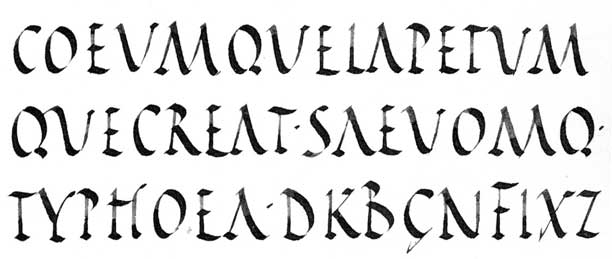 COEVMQVELAPETVM
QVECREAT·SAEVOMQ·
TYPHOEA·DKBGNFIXZ